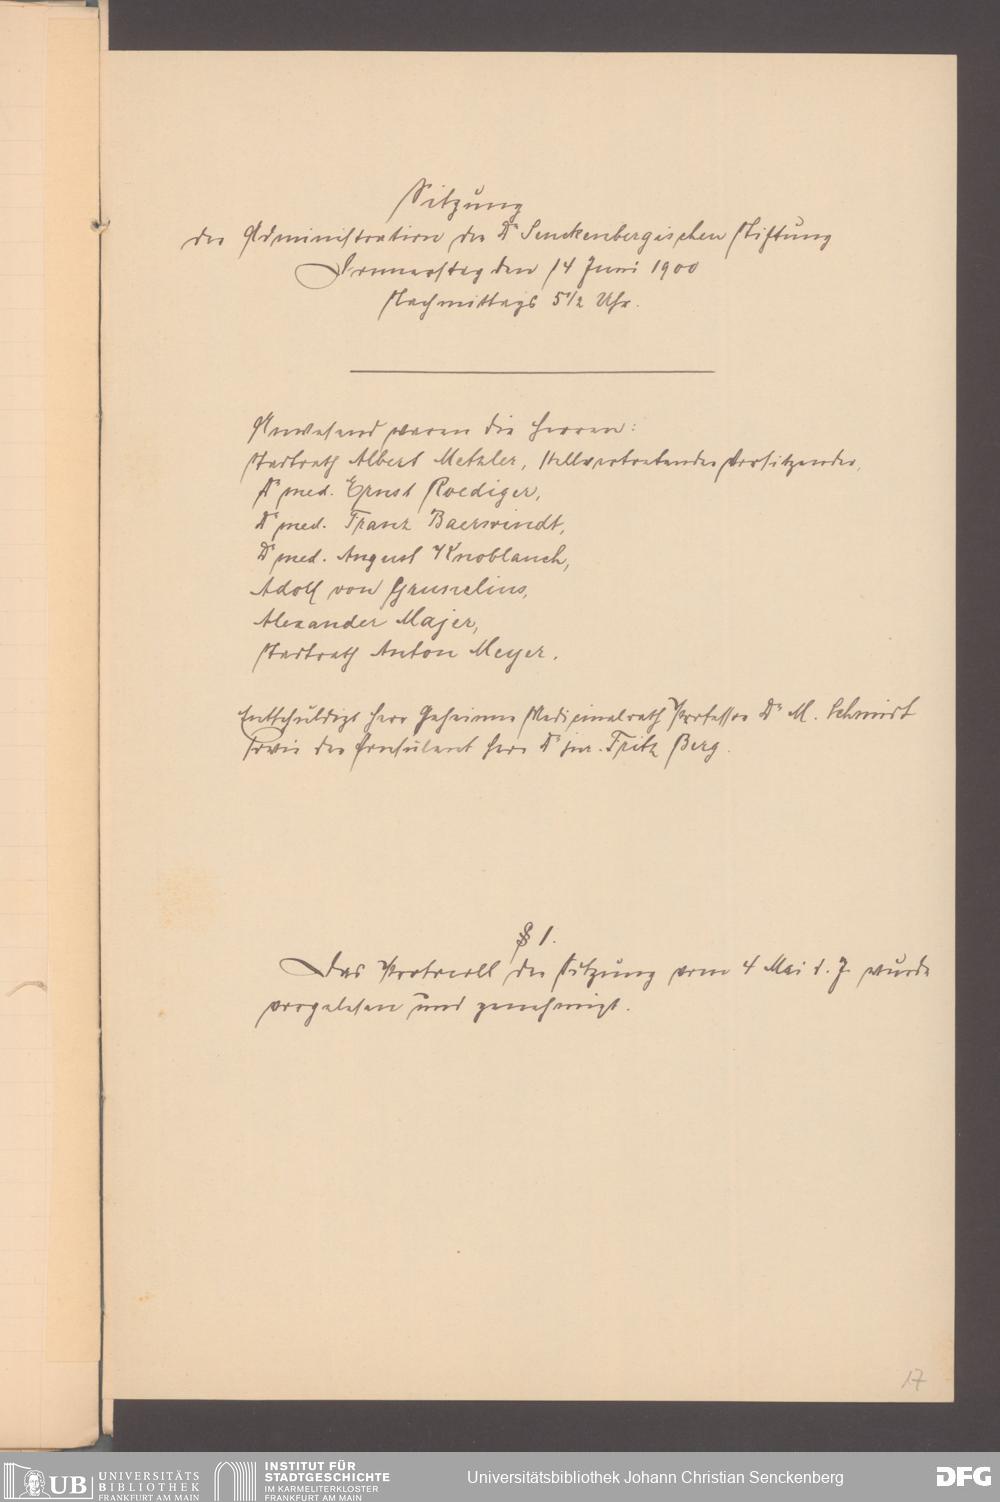 Sitzung
der Administration der Dr Senckenbergischen Stiftung
Donnerstag den 14 Juni 1900
Nachmittags 5 1/2 Uhr.
Anwesend waren die Herren:
Stadtrath Albert Metzler, stellvertretender Vorsitzender,
Dr med. Ernst Roediger,
Dr med. Franz Baerwindt,
Dr med. August Knoblauch,
Adolf von Grunelius,
Alexander Majer,
Stadtrath Anton Meyer.
Entschuldigt Herr Geheimer Medicinalrath Professor Dr M. Schmidt
sowie der Consulent Herr Dr jur. Fritz Berg.
§ 1.
Das Protocoll der Sitzung vom 4 Mai d. J. wurde
vorgelesen und genehmigt.
17
UB UNIVERSITÄTS
BIBLIOTHEK
FRANKFURT AM MAIN
INSTITUT FÜR
STADTGESCHICHTE
IM KARMELITERKLOSTER
FRANKFURT AM MAIN
Universitätsbibliothek Johann Christian Senckenberg
DFG